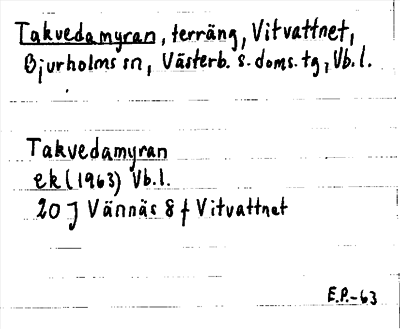 Takvedamyran, terräng, Vitvattnet,
Bjurholms sn, Västerb. s. doms. tg, Vb. l.
Takvedamyran
ek (1963) Vb. l.
20 J Vännäs 8 f Vitvattnet
E.P.-63